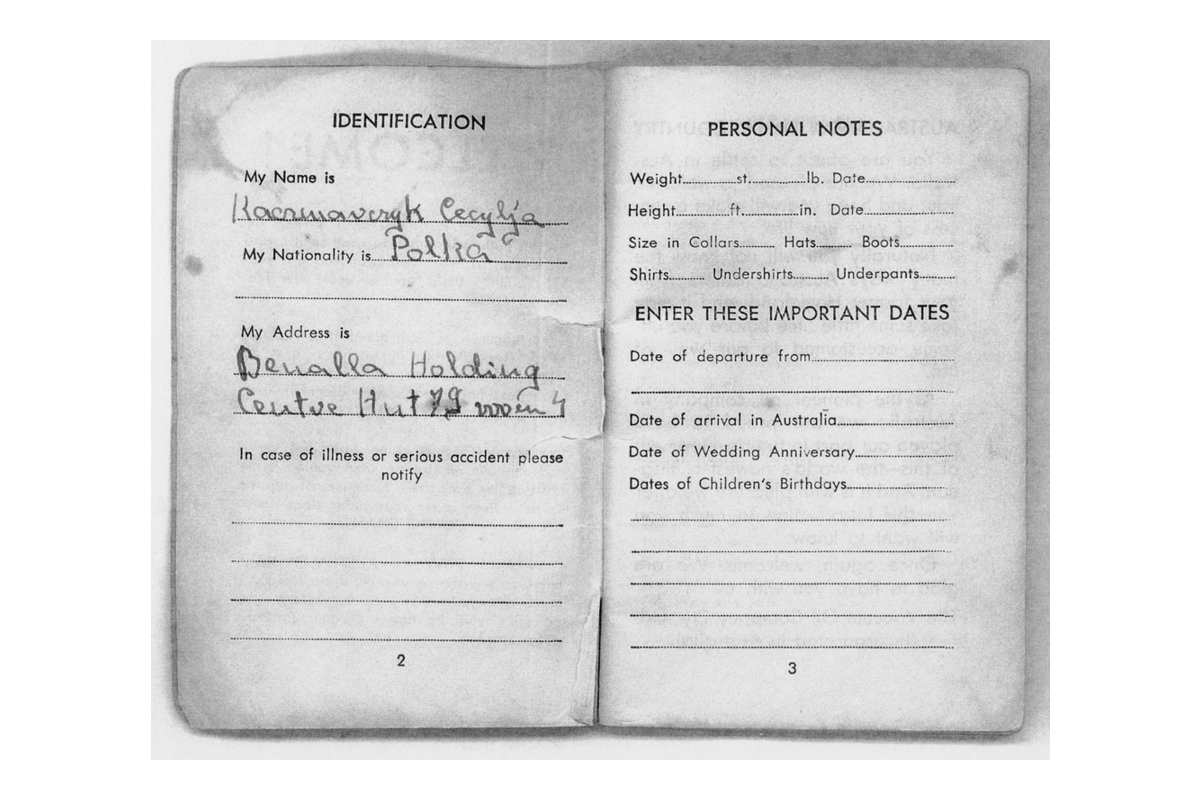 IDENTIFICATION
My Name is
Kaczmarczyk Cecylja
My Nationality is Polka
My Address is
Benalla Holding
Centre Hut 79 room 4
In case of illness or serious accident please
notify
2
PERSONAL NOTES
Weight st. lb. Date
Height ft. in. Date
Size in Collars Hats Boots
Shirts Undershirts Underpants
ENTER THESE IMPORTANT DATES
Date of departure from
Date of arrival in Australia
Date of Wedding Anniversary
Dates of Children's Birthdays
3